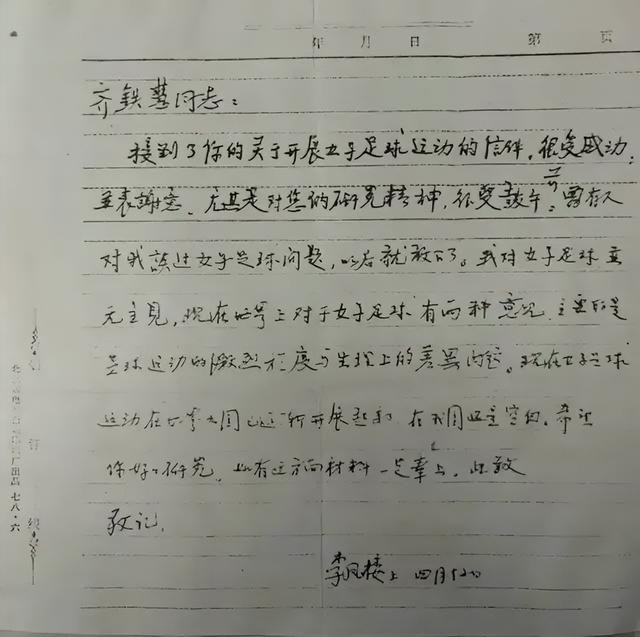 年 月 日 第 页
齐铁慧同志：
接到了你的关于开展女子足球运动的信件，很受感动，
并表谢意。尤其是对您的研究精神，很受鼓午。曾有人
对我谈过女子足球问题，以后就散了。我对女子足球并
无主见，现在世界上对于女子足球有两种意见，主要的是
足球运动的激烈程度与生理上的差异问题。现在女子足球
运动在世界各国已逐渐开展起来，在我国还是空白。希望
你好好研究，如有这方面材料一定奉上。此致
敬礼。
李凤楼上 四月
七八·六